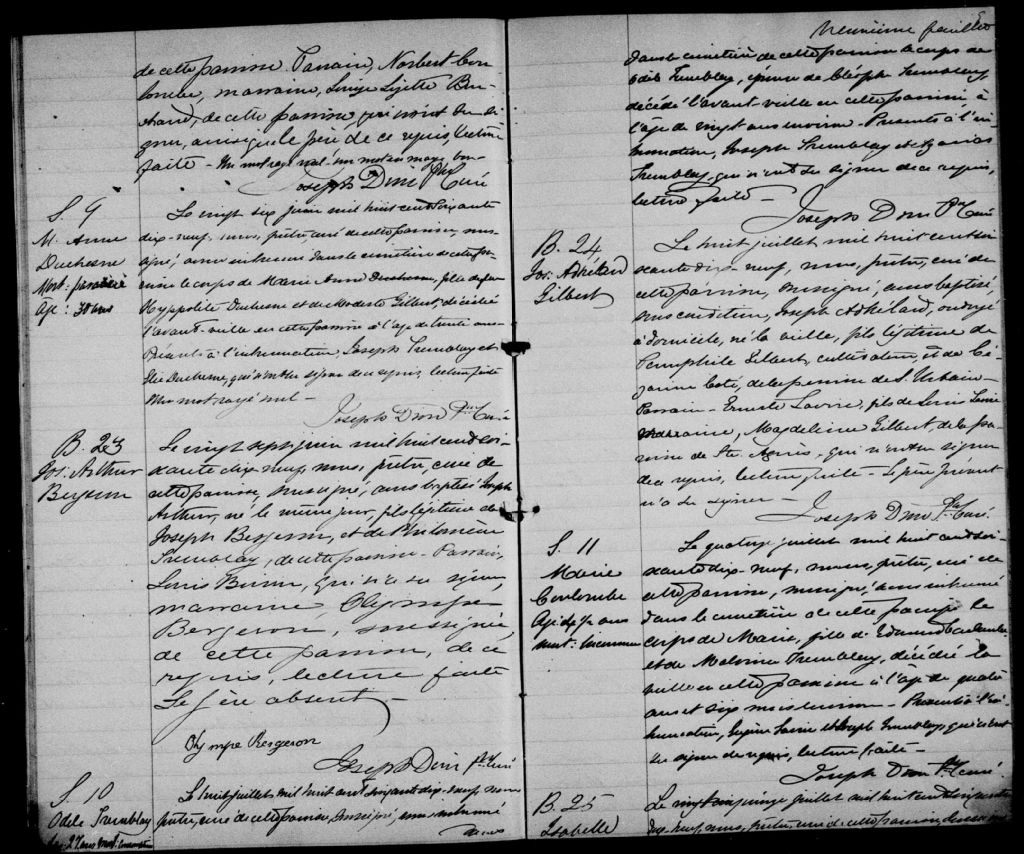 de cette paroisse Parrain, Norbert Cou-
lombe, marraine,
de cette paroisse qui n'ont su si-
gner, ainsi que le père de ce requis, lecture
faite - Un mot rayé nul - un mot en marge bon -
Joseph Dion Ptre Curé
S. 9
M. Anne
Duchesne
Mort:
Age: 30 ans
Le vingt six juin mil huit cent soixante
dix-neuf, nous, prêtre, curé de cette paroisse, sous-
signé, avons inhumé dans le cimetière de cette pa-
roisse le corps de Marie Anne Duchesne, fille de feu
Hyppolite Duchesne et de Modeste Gilbert, décédée
l'avant-veille en cette paroisse à l'âge de trente ans
Présents à l'inhumation, Joseph Tremblay et
Duchesne, qui n'ont su signer de ce requis, lecture faite
Un mot rayé nul -
Joseph Dion Ptre Curé
B. 23
Jos: Arthur
Bergeron
Le vingt sept juin mil huit cent soi-
xante dix-neuf, nous, prêtre, curé de
cette paroisse, soussigné, avons baptisé Joseph
Arthur, né le même jour, fils légitime de
Joseph Bergeron, et de Philomène
Tremblay, de cette paroisse - Parrain,
Louis qui n'a su signer,
marraine Olympe
Bergeron, soussignée,
de cette paroisse, de ce
requis, lecture faite
Le père absent -
Olympe Bergeron
Joseph Dion Ptre Curé
S. 10
Odele Tremblay
27 ans
Le huit juillet mil huit cent soixante dix-neuf nous
prêtre, curé de cette paroisse, soussigné, avons inhumé
dans
Neuvième feuillet
dans le cimetière de cette paroisse le corps de
Odile Tremblay, épouse de Cléophe Tremblay,
décédé l'avant veille en cette paroisse, à
l'âge de vingt ans environ - Présents à l'in-
humation, Joseph Tremblay et
Tremblay, qui n'ont su signer de ce requis,
lecture faite -
Joseph Dion Ptre Curé
B. 24
Jos: Adhélard
Gilbert
Le huit juillet mil huit cent soi-
xante dix-neuf, nous, prêtre, curé de
cette paroisse, soussigné, avons baptisé,
sous condition, Joseph Adhélard, ondoyé
à domicile, né la veille, fils légitime de
Pamphile Gilbert, cultivateur, et de Cé-
sarine Coté, de la paroisse de S. Urbain -
Parrain - Ernest Lavoie, fils de Lavoie
marraine, Magdeleine Gilbert de la pa-
roisse de Ste Agnès, qui n'ont su signer
de ce requis, lecture faite - Le père présent
n'a su signer -
Joseph Dion Ptre Curé.
S. 11
Marie
Coulombe
Age: de 4½ ans
mort: inconnue
Le quatorze juillet mil huit cent soi-
xante dix-neuf, nous, prêtre, curé de
cette paroisse, soussigné, avons inhumé
dans le cimetière de cette paroisse le
corps de Marie, fille d'Edmond Coulombe
et de Malvina Tremblay, décédée la
veille en cette paroisse à l'âge de quatre
ans et six mois environ - Présents à l'in-
humation, Lavoie et Joseph Tremblay, qui n'ont
su signer de ce requis, lecture faite -
Joseph Dion Ptre Curé.
B. 25
Isabelle
Le vingt cinq juillet mil huit cent soixante
dix-neuf, nous, prêtre, curé de cette paroisse, soussigné